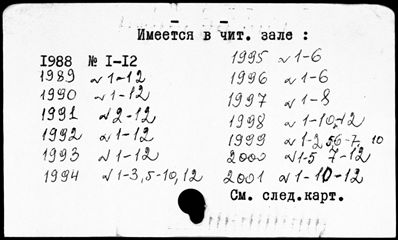 Имеется в чит. зале :
I988 № I-I2
1989 № 1-12
1990 № 1-12
1991 № 2-12
1992 № 1-12
1993 № 1-12
1994 № 1-3, 5-10, 12
1995 № 1-6
1996 № 1-6
1997 № 1-8
1998 № 1-10, 12
1999 № 1-2, 5, 6-7, 10
2000 № 1-5 7-12
2001 № 1-10-12
См. след.карт.